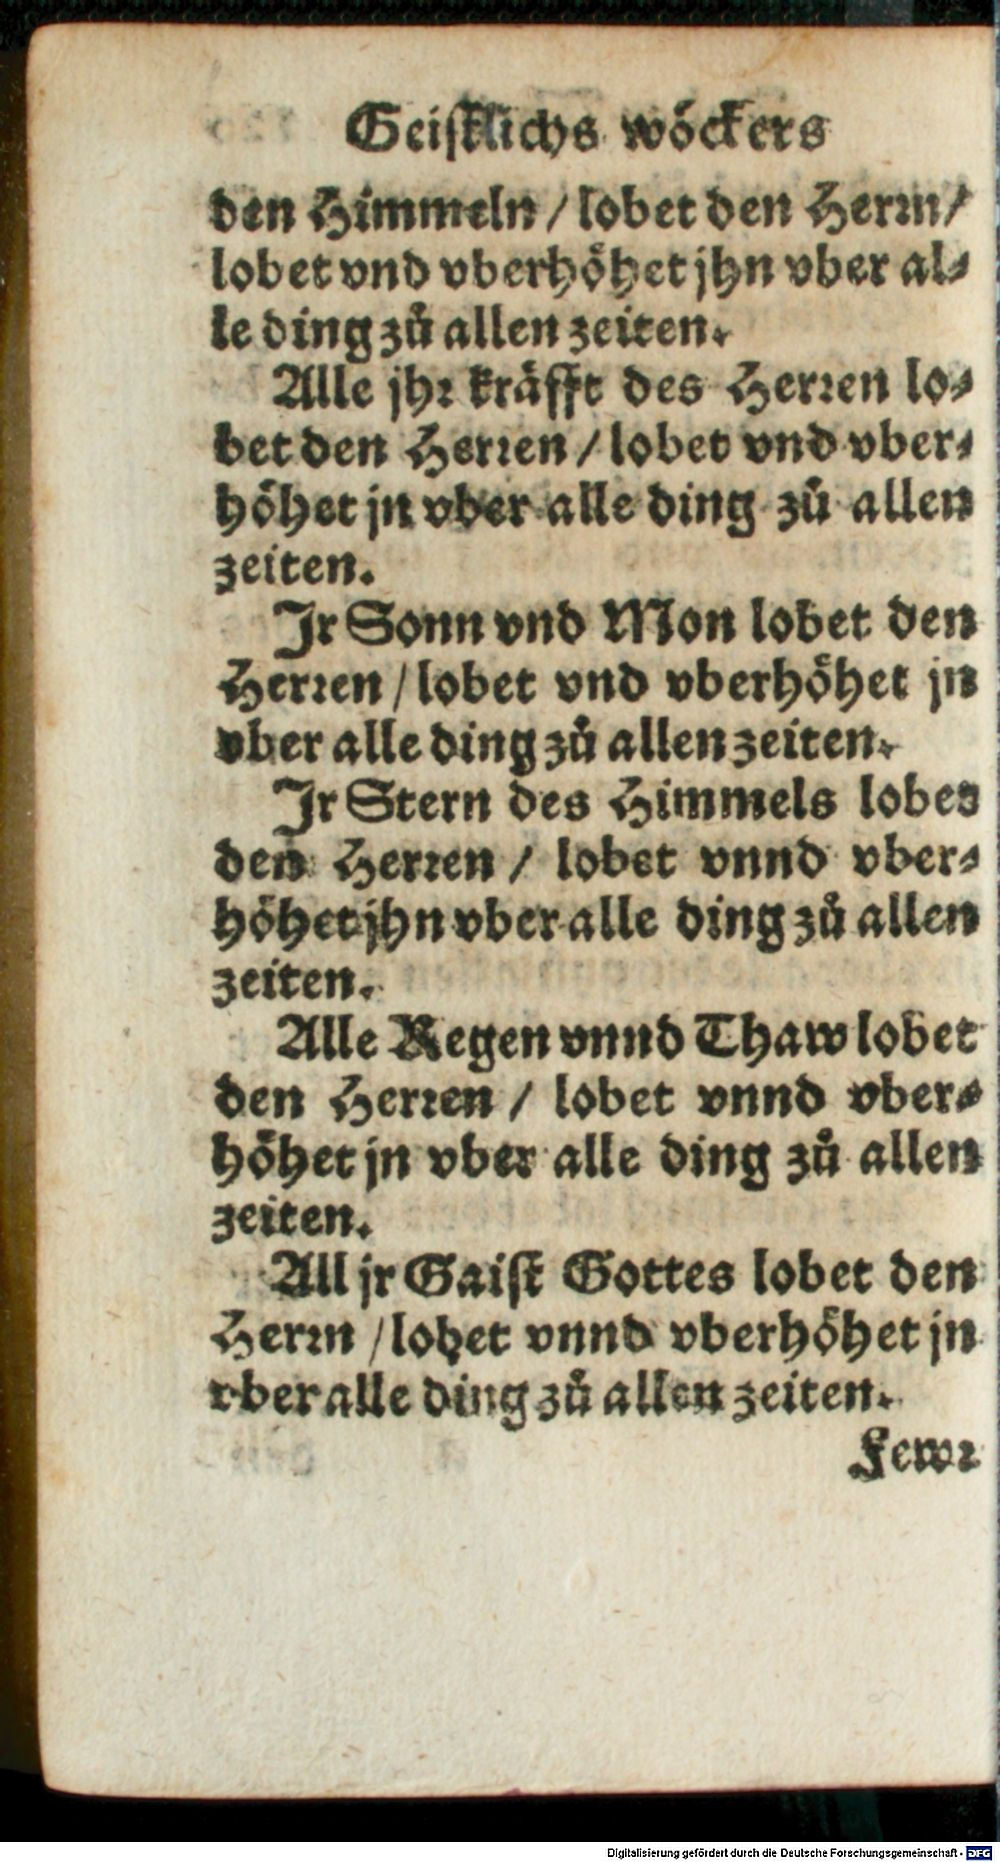 Geistlichs wöckers
den Himmeln / lobet den Herrn /
lobet vnd vberhöhet jhn vber al⸗
le ding zů allen zeiten.
Alle jhr kräfft des Herren lo⸗
bet den Herren / lobet vnd vber⸗
höhet jn vber alle ding zů allen
zeiten.
Jr Sonn vnd Mon lobet den
Herren / lobet vnd vberhöhet jn
vber alle ding zů allen zeiten.
Jr Stern des Himmels lobet
den Herren / lobet vnnd vber⸗
höhet jhn vber alle ding zů allen
zeiten.
Alle Regen vnnd Thaw lobet
den Herren / lobet vnnd vber⸗
höhet jn vber alle ding zů allen
zeiten.
All jr Gaist Gottes lobet den
Herrn / lobet vnnd vberhöhet jn
vber alle ding zů allen zeiten.
Fewr
Digitalisierung gefördert durch die Deutsche Forschungsgemeinschaft - DFG